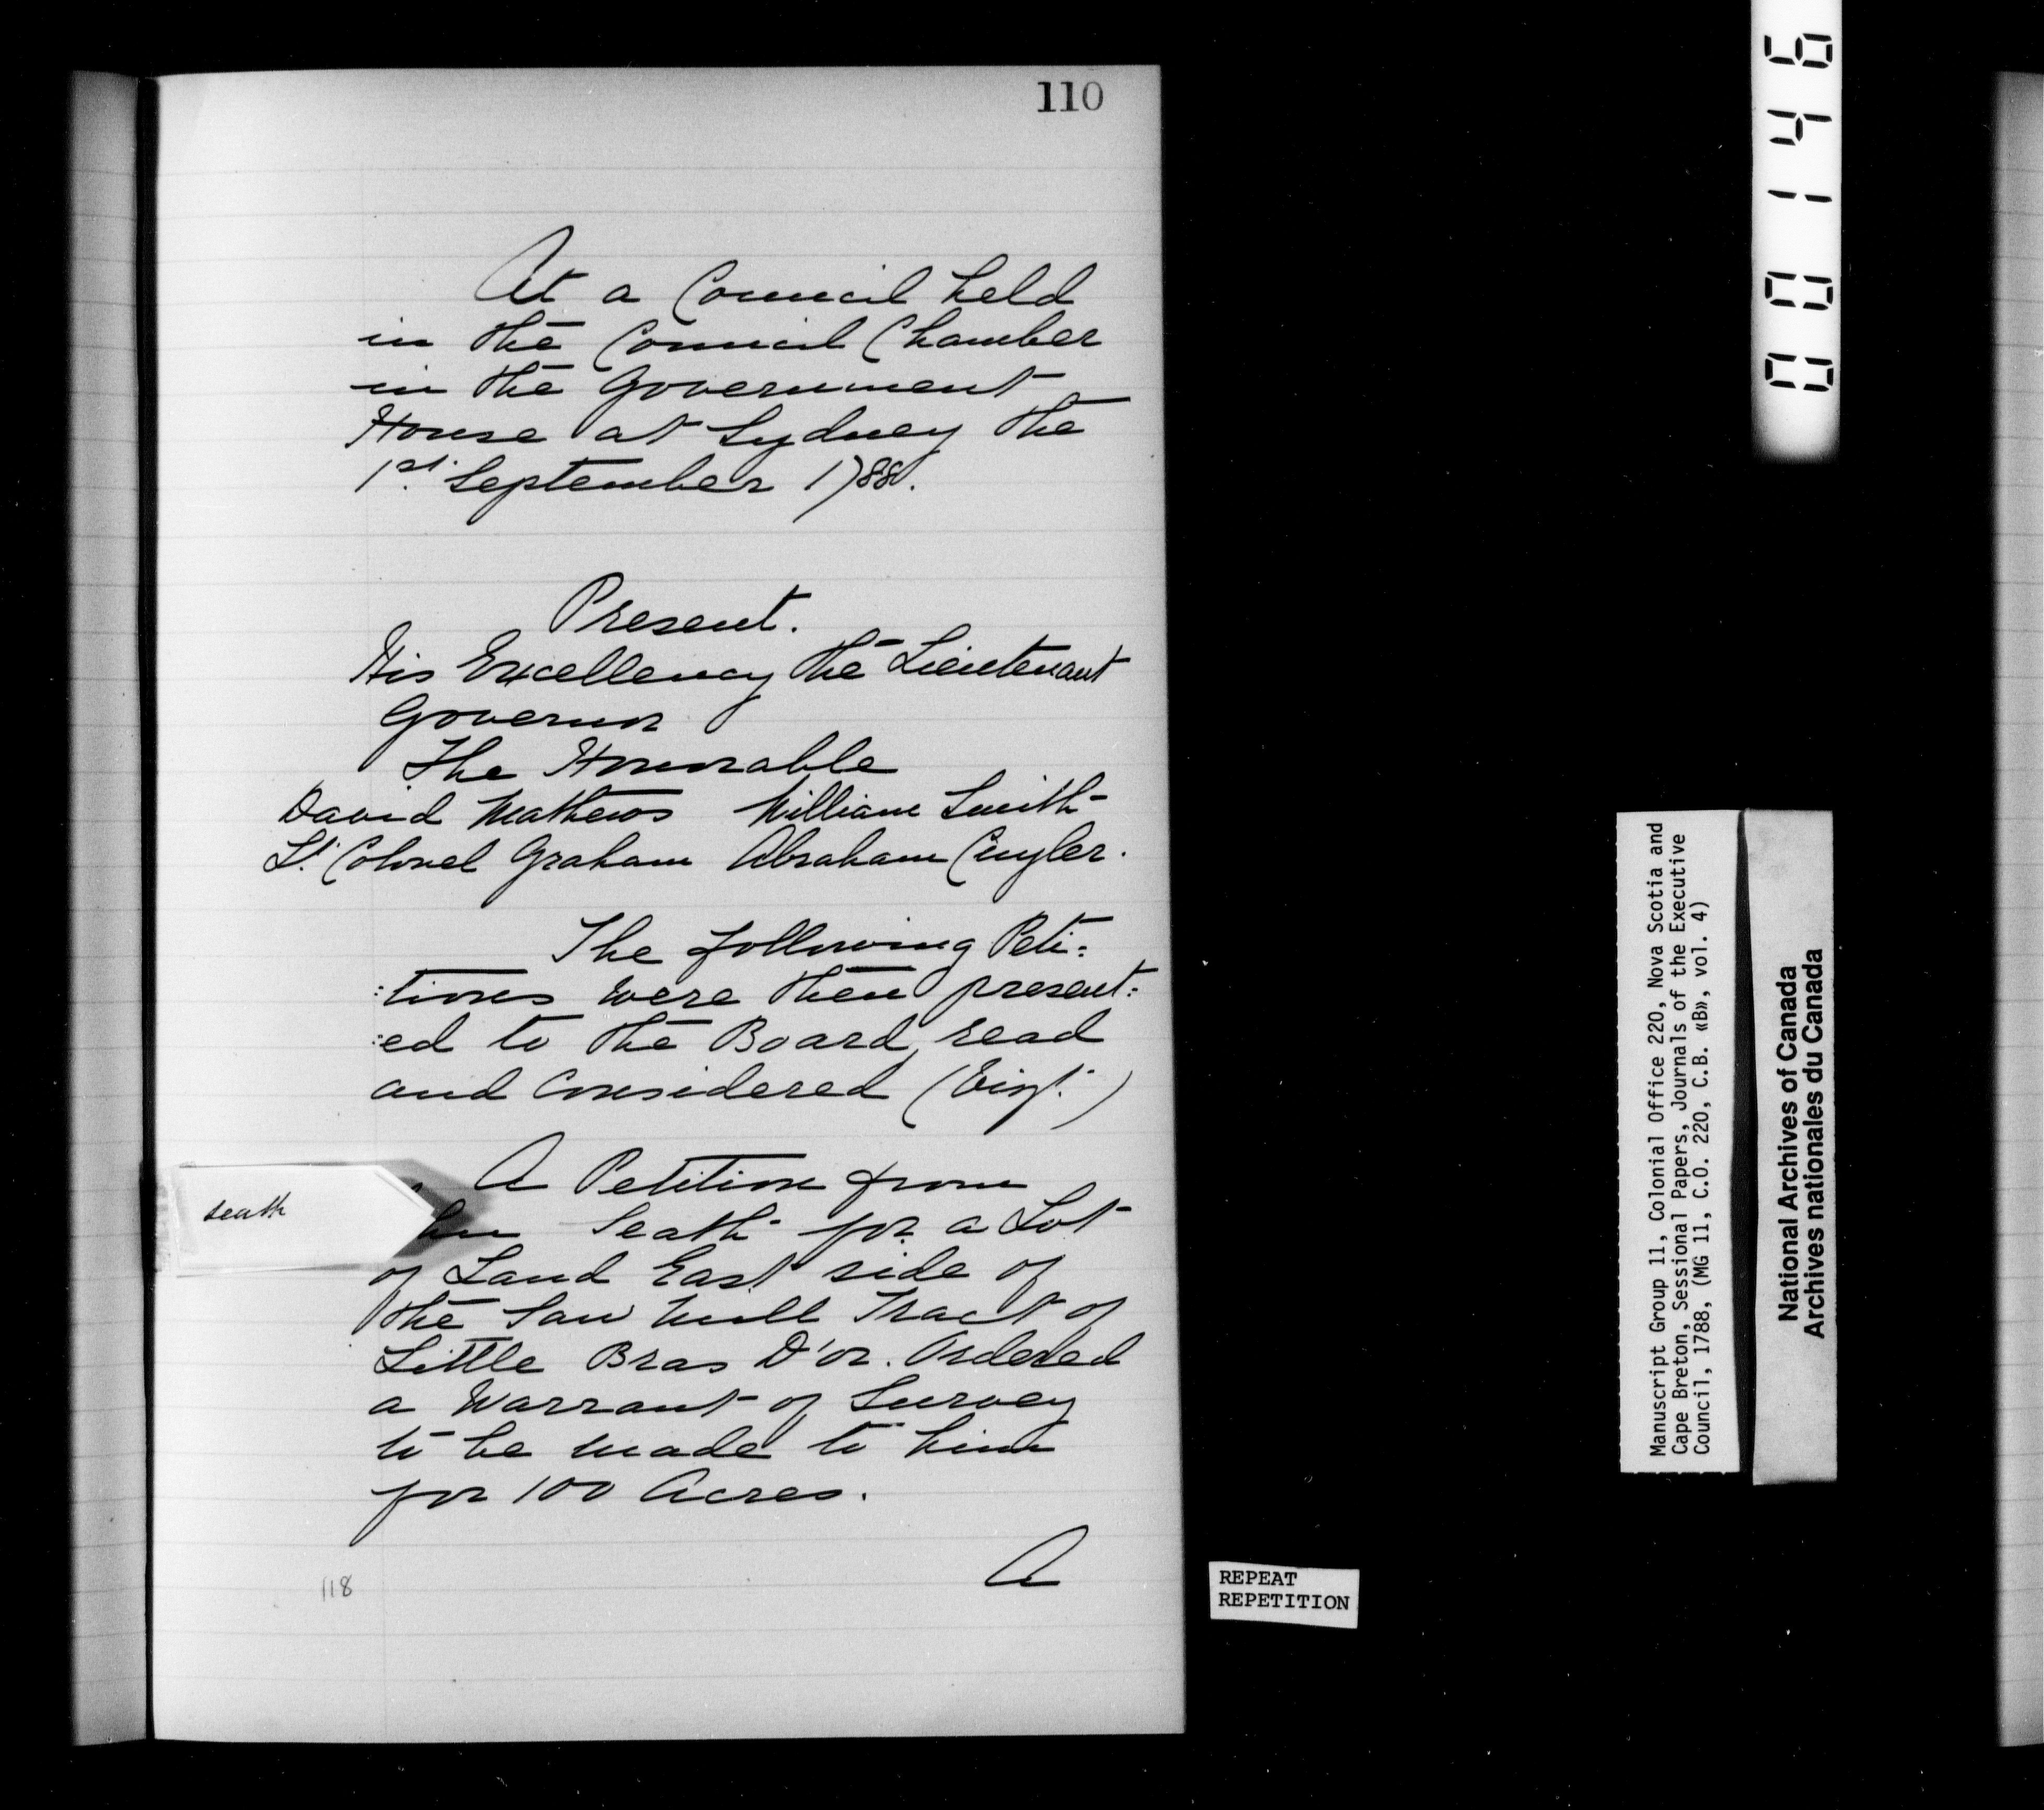 110
At a Council held
in the Council Chamber
in the Government
House at Sydney the
1st. September 1788.
Present.
His Excellency the Lieutenant
Governor
The Honorable
David Mathews William Smith
Lt. Colonel Graham Abraham Cuyler.
The following Peti:
:tions were then present:
:ed to the Board, read
and Considered (Vizt.)
A Petition from
seath
hn Seath for a Lot
of Land East side of
the Saw Mill Tract of
Little Bras D'or. Ordered
a Warrant of Survey
to be made to him
for 100 Acres.
A
118
REPEAT
REPETITION
000146
Manuscript Group 11, Colonial Office 220, Nova Scotia and
Cape Breton, Sessional Papers, Journals of the Executive
Council, 1788, (MG 11, C.O. 220, C.B. «B», vol. 4)
National Archives of Canada
Archives nationales du Canada